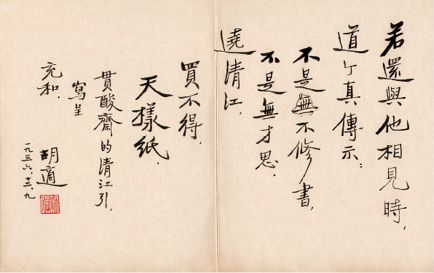 若還與他相見時,
道个真傳示:
不是無不修書,
不是無才思,
遶清江,
買不得,
天樣紙.
貫酸齋的清江引,
寫呈
充和.
胡適
一九五六.十二.九